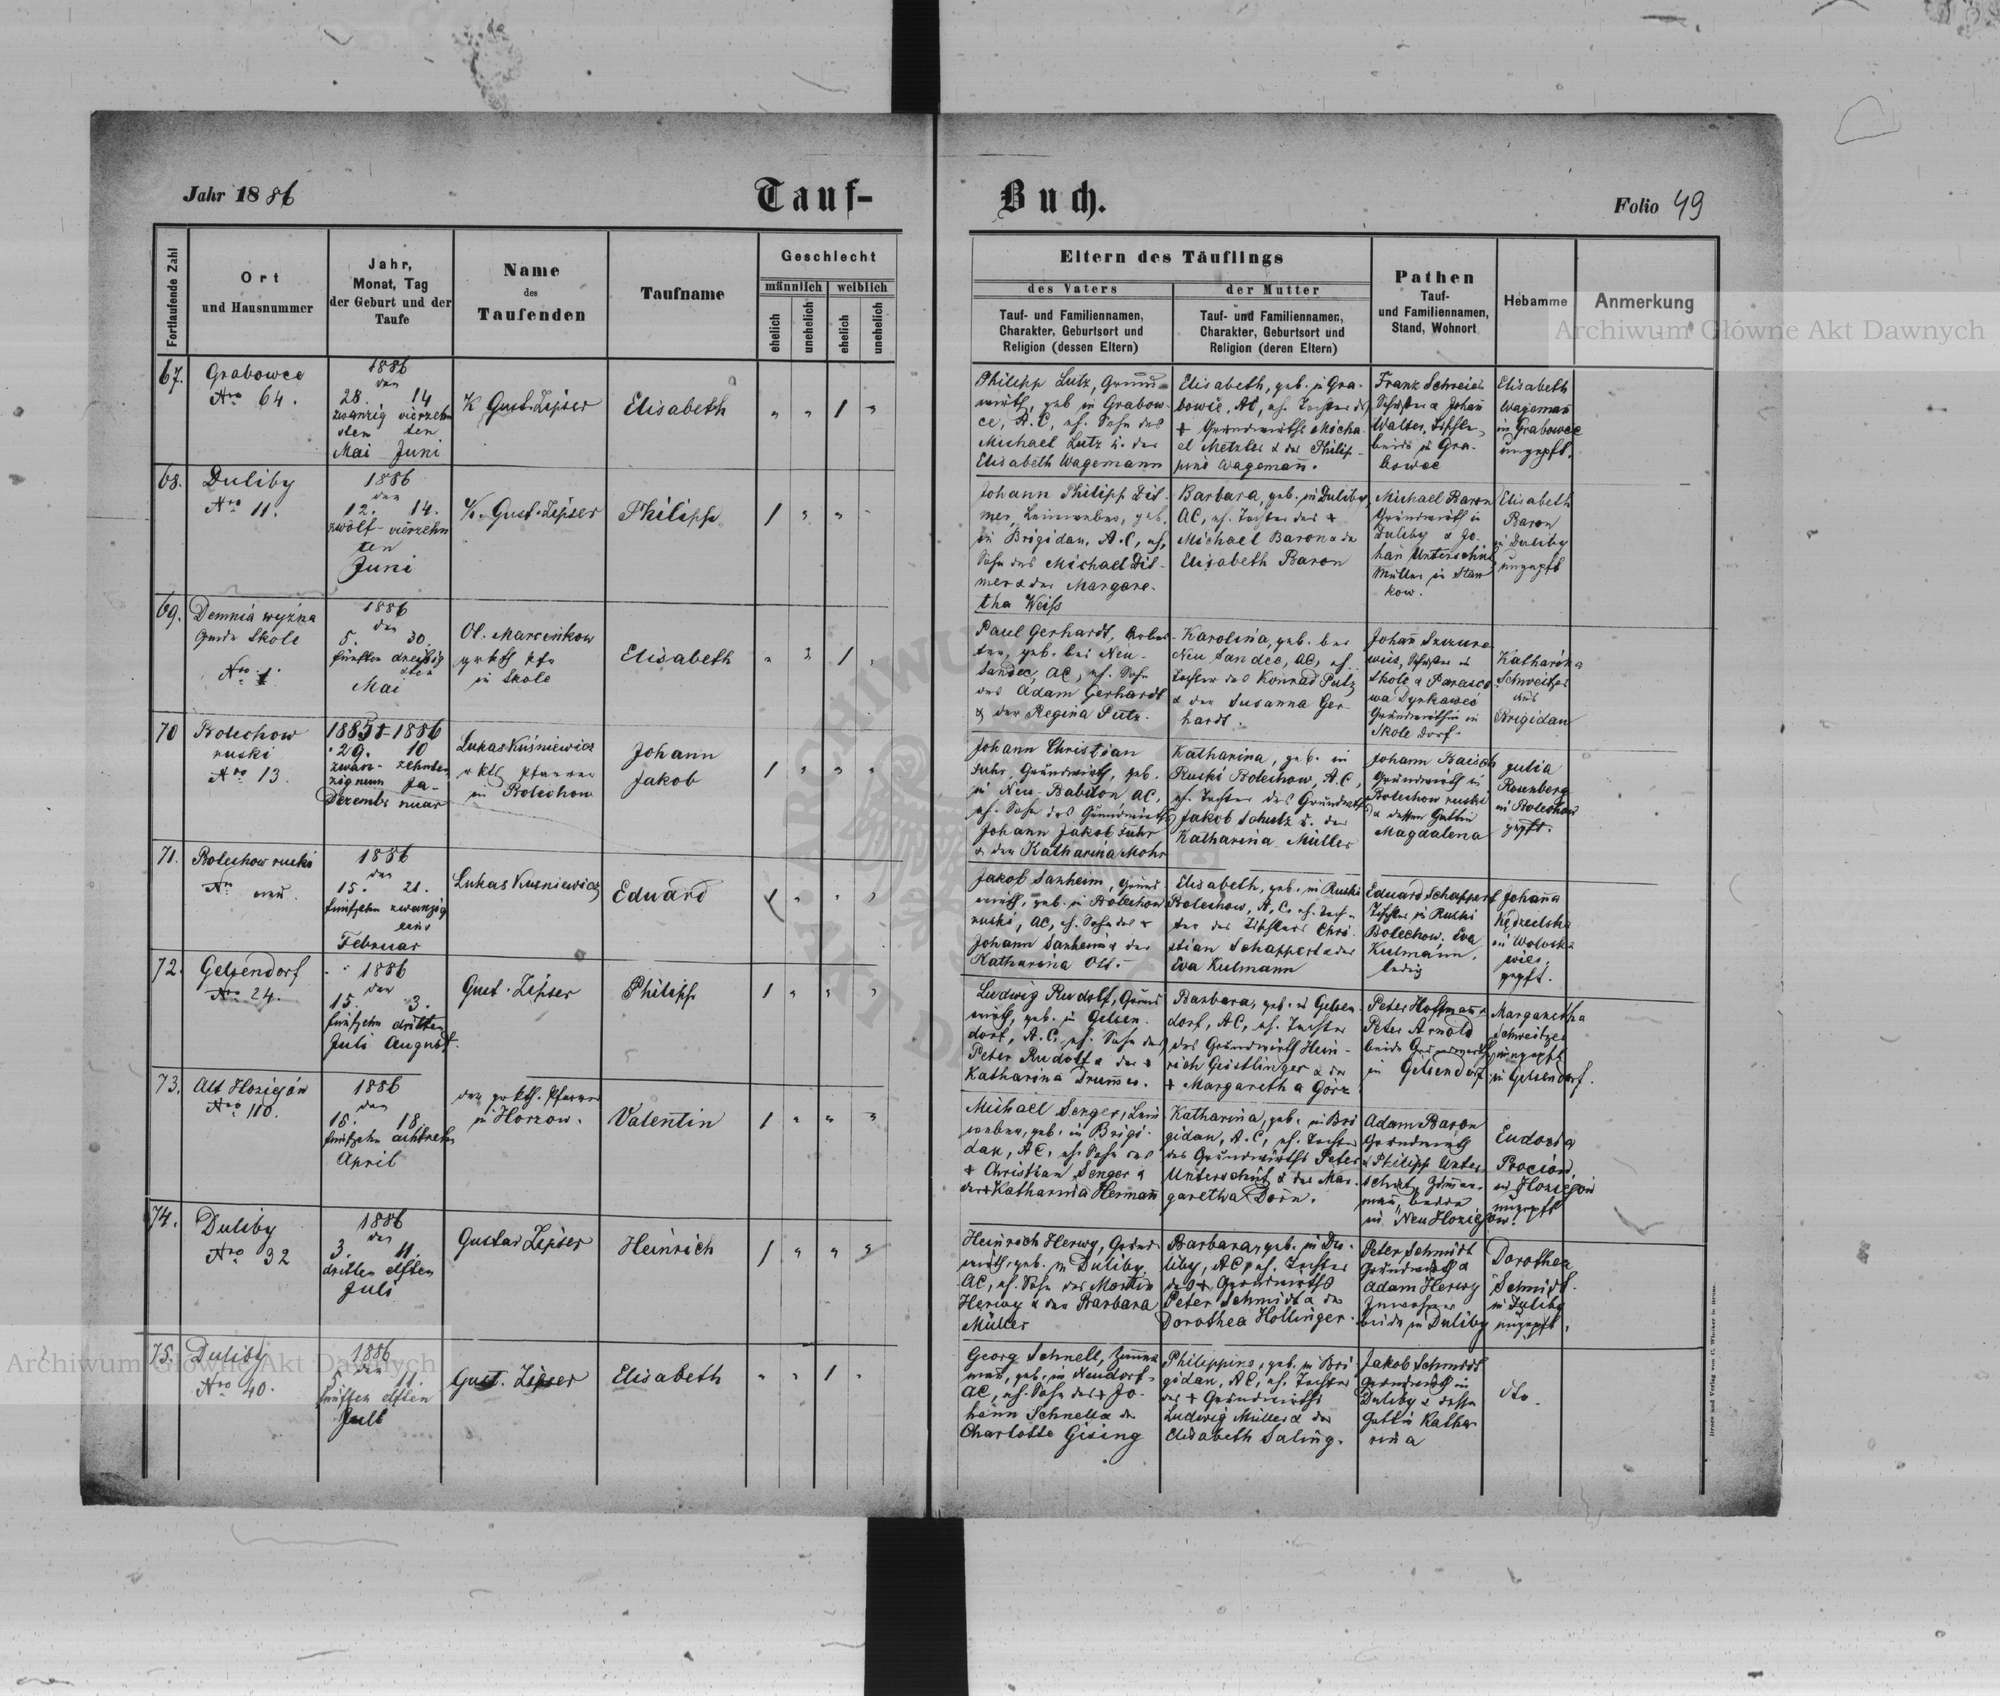 Jahr 1886
Tauf-
Buch.
Folio 49
Fortlaufende Zahl
Ort
und Hausnummer
Jahr,
Monat, Tag
der Geburt und der
Taufe
Name
des
Taufenden
Taufname
Geschlecht
männlich weiblich
ehelich
unehelich
ehelich
unehelich
Eltern des Täuflings
des Vaters
Tauf- und Familiennamen,
Charakter, Geburtsort und
Religion (dessen Eltern)
der Mutter
Tauf- und Familiennamen,
Charakter, Geburtsort und
Religion (deren Eltern)
Pathen
Tauf-
und Familiennamen,
Stand, Wohnort
Hebamme
Anmerkung
67.
Grabowce
Nro 64.
1886
den
28. 14
zwanzig vierzehn
sten ten
Mai Juni
Gust. Zipser
Elisabeth
" " 1 "
Philipp Lutz, Grund-
wirth, geb in Grabow-
ce, A.C, eh. Sohn des
Michael Lutz u. der
Elisabeth Wagemann
Elisabeth, geb. in Gra-
bowce, AC, eh. Tochter des
+ Grundwirths Micha-
el Metzler & der Philip-
pine Wagemann.
Franz Schreier
Schuster & Johann
Walter, Tischler,
beide in Gra-
bowce
Elisabeth
Wagemann
in Grabowce
ungepft.
68.
Duliby
Nro 11.
1886
den
12. 14.
zwölf- vierzehn
ten
Juni
Gust. Zipser
Philipp
1 " " "
Johann Philipp Dil-
mer, Leinweber, geb.
in Brigidau, A.C, eh,
Sohn des Michael Dil-
mer & der Margare-
tha Weiss
Barbara, geb. in Duliby,
AC, eh. Tochter des +
Michael Baron & der
Elisabeth Baron
Michael Baron
Grundwirth in
Duliby & Jo-
hann Unterschüt
Müller in Stan
kow.
Elisabeth
Baron
in Duliby
ungepft
69.
Demnia wyżna
Skole
Nro 1.
1886
den
5. 30.
fünften dreißig
sten
Mai
Ol. Marcinkow
grkth Pfr
in Skole
Elisabeth
" " 1 "
Paul Gerhardt, Arbei-
ter, geb. bei Neu-
Sandec, AC, eh. Sohn
des Adam Gerhardt
& der Regina Putz.
Karolina, geb. bei
Neu Sandec, AC, eh.
Tochter des Konrad Putz
& der Susanna Ger-
hardt.
Johann
Schuster in
Skole & Parasco
wa
Grundwirthin in
Skole dorf.
Katharina
Schweitzer
aus
Brigidau
70
Bolechow
ruski
Nro 13.
1885 - 1886
29. 10
zwan- zehnten
zig neun Ja-
Dezemb. nuar
Lukas Kuśniewicz
rktl Pfarrer
in Bolechow
Johann
Jakob
1 " " "
Johann Christian
Fuhr, Grundwirth, geb.
in Neu-Babilon, AC,
eh. Sohn des Grundwirth
Johann Jakob Fuhr
& der Katharina Mohr
Katharina, geb. in
Ruski Bolechow, A.C,
eh. Tochter des Grundwirth
Jakob Schutz u. der
Katharina Müller
Johann Baisch
Grundwirth in
Bolechow ruski
& dessen Gattin
Magdalena
Julia
Rosenberg
in Bolechow
gepft.
71.
Bolechow ruski
Nro neu.
1886
den
15. 21.
fünfzehn zwanzig
eins
Februar
Lukas Kusniewicz
Eduard
1 " " "
Jakob Sanheim, Grund-
wirth, geb. in Bolechow
ruski, AC, eh. Sohn des +
Johann Sanheim & der
Katharina Ott.
Elisabeth, geb. in Ruski
Bolechow, A.C, eh. Toch-
ter des Tischlers Chri-
stian Schappert & der
Eva Kulmann
Eduard Schappert
Tischler in Ruski
Bolechow. Eva
Kulmann,
ledig
Johanna
in Woloska
wies,
gepft.
72.
Gelsendorf
Nro 24.
1886
den
15. 3.
fünfzehn dritten
Juli August.
Gust. Zipser
Philipp
1 " " "
Ludwig Rudolf, Grund
wirth, geb. in Gelsen
dorf, A.C, eh. Sohn des
Peter Rudolf & der +
Katharina Drumm.
Barbara, geb. in Gelsen
dorf, AC, eh. Tochter
des Grundwirth Hein-
rich Geistlinger & der
+ Margaretha Görz
Peter Hoffmann &
Peter Arnold
beide Grundwirth
in Gelsendorf
Margaretha
Schweitzer
ungepft
in Gelsendorf.
73.
Alt Hozigów
Nro 110.
1886
den
15. 18.
fünfzehn achtzehn
April
der grkth. Pfarrer
in Horzow.
Valentin
1 " " "
Michael Senger, Lein
weber, geb. in Brigi-
dau, AC, eh. Sohn des
+ Christian Senger &
der + Katharina Hermann
Katharina, geb. in Bri
gidau, A.C, eh. Tochter
des Grundwirths Peter
Unterschüt & der Mar-
garetha Dorn.
Adam Baron
Grundwirth
& Philipp Unter
schüt, Zimmer-
mann, beide
in Neu Hozigów.
Eudoxia
Procion,
in Hozigów
ungepft
74.
Duliby
Nro 32
1886
den
3. 11.
dritten elften
Juli
Gustav Zipser
Heinrich
1 " " "
Heinrich Herwy, Grund
wirth, geb. in Duliby,
AC, eh. Sohn des Martin
Herwy & der Barbara
Müller
Barbara, geb. in Du-
liby, AC, eh. Tochter
des + Grundwirths
Peter Schmidt & der
Dorothea Hollinger.
Peter Schmidt
Grundwirth &
Adam Herwy
Inwohner
beide in Duliby
Dorothea
Schmidt.
in Duliby
ungepft.
75.
Duliby
Nro 40.
1886
den
5. 11.
fünften elften
Juli
Gust. Zipser
Elisabeth
" " 1 "
Georg Schnell, Zimmer
mann, geb. in Neudorf,
AC, eh. Sohn des + Jo-
hann Schnell & der
Charlotte Gising
Philippine, geb. in Bri
gidau, AC, eh. Tochter
des + Grundwirths
Ludwig Müller & der
Elisabeth Saling.
Jakob Schmidt
Grundwirth in
Duliby & dessen
Gattin Katha-
rina
dto.
Archiwum Główne Akt Dawnych
Archiwum Główne Akt Dawnych